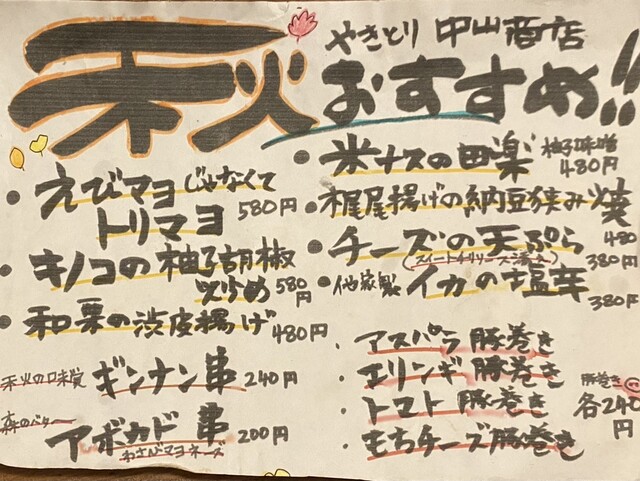 秋
やきとり 中山商店
おすすめ!!
えびマヨじゃなくて
トリマヨ 580円
キノコの柚子胡椒
炒め 580円
和栗の渋皮揚げ 480円
秋の味覚 ギンナン串 240円
森のバター アボカド串 200円
わさびマヨネーズ
米ナスの田楽 柚子味噌 480円
栃尾揚げの納豆挟み焼 480
チーズの天ぷら 380円
(スイートチリソース添え)
自家製 イカの塩辛 380円
アスパラ豚巻き
エリンギ豚巻き
トマト豚巻き
もちチーズ豚巻き
豚巻き 各240円